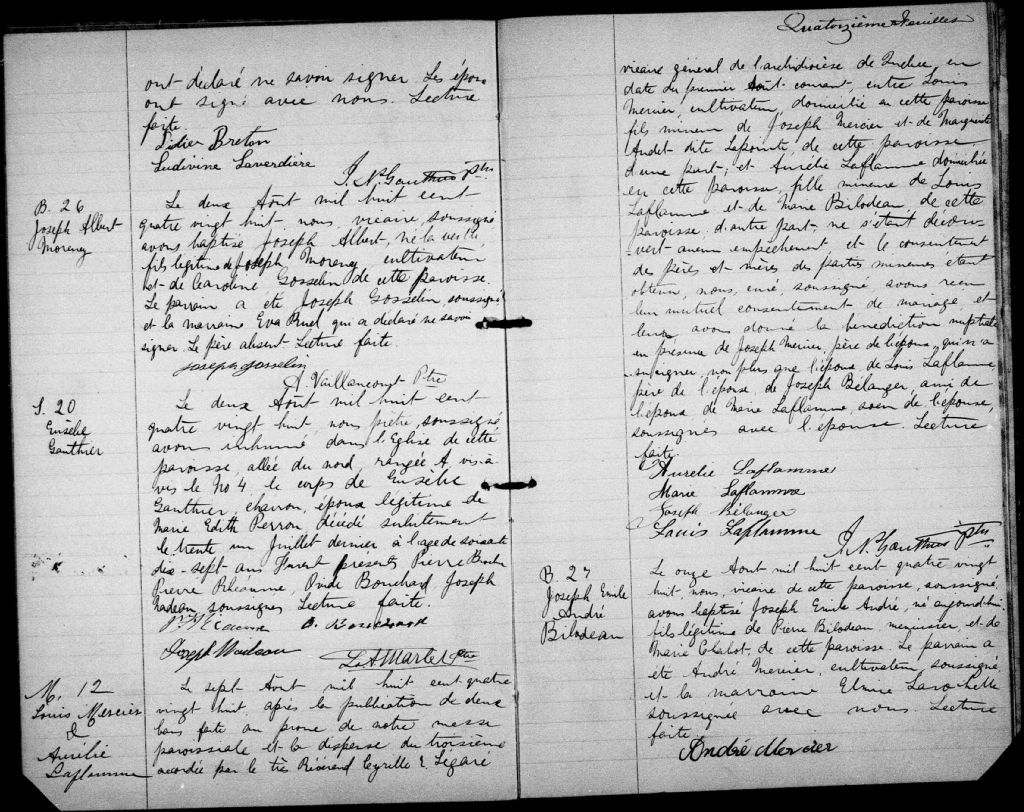 ont déclaré ne savoir signer. Les époux
ont signé avec nous. Lecture
faite.
Didier Breton
Ludivine Laverdière
J. N. Gauthier Ptre
B. 26
Joseph Albert
Morency
Le deux Août mil huit cent
quatre vingt huit, nous vicaire soussigné
avons baptisé Joseph Albert, né la veille
fils légitime de Joseph Morency cultivateur
et de Caroline Gosselin de cette paroisse.
Le parrain a été Joseph Gosselin, soussigné
et la marraine Eva qui a declaré ne savoir
signer. Le père absent. Lecture faite.
Joseph Gosselin
A. Vaillancourt Ptre
S. 20
Eusèbe
Gauthier
Le deux Août mil huit cent
quatre vingt huit, nous prêtre, soussigné,
avons inhumé dans l'Eglise de cette
paroisse, allée du nord, rangée A vis-à
vis le No 4. le corps de Eusèbe
Gauthier, charron, époux légitime de
Marie Edith Perron décédé subitement
le trente un Juillet dernier à l'age de soixante
dix-sept ans. Furent presents Pierre
Pierre Rhéaume, Ovide Bouchard, Joseph
Nadeau, soussignés Lecture faite.
O. Bouchard
Joseph
L A Martel Ptre
M. 12
Louis Mercier
&
Aurélie
Laflamme
Le sept Août mil huit cent quatre
vingt huit après la publication de deux
bans faite au prone de notre messe
paroissiale et la dispense du troisième
accordée par le très Révérend Cyrille E. Légaré
Quatorzième Feuillet
vicaire général de l'archidiocèse de Québec, en
date du premier Août courant, entre Louis
Mercier, cultivateur, domicilié en cette paroisse
fils mineur de Joseph Mercier et de Marguerite
Audet dite Lapointe, de cette paroisse
d'une part; et Aurélie Laflamme domiciliée
en cette paroisse, fille mineure de Louis
Laflamme et de Marie Bilodeau, de cette
paroisse d'autre part, ne s'étant décou-
vert aucun empêchement et le consentement
des pères et mères des parties mineures étant
obtenu, nous, curé, soussigné avons reçu
leur mutuel consentement de mariage et
leur avons donné la benediction nuptiale
en présence de Joseph Mercier, père de l'époux, qui n'a
su signer, non plus que l'époux, de Louis Laflamme
père de l'épouse, de Joseph Bélanger, ami de
l'époux, de Marie Laflamme, soeur de l'épouse,
soussignés avec l'épouse. Lecture
faite.
Aurelie Laflamme
Marie Laflamme
Joseph Bélanger
Louis Laflamme
J. N. Gauthier Ptre
B. 27
Joseph Emile
André
Bilodeau
Le onze Août mil huit cent quatre vingt
huit, nous, vicaire de cette paroisse, soussigné
avons baptisé Joseph Emile André, né aujourd'hui
fils légitime de Pierre Bilodeau, menuisier, et de
Marie de cette paroisse. Le parrain a
été André Mercier, cultivateur, soussigné
et la marraine Elmire Larochelle
soussignée avec nous Lecture
faite.
André Mercier